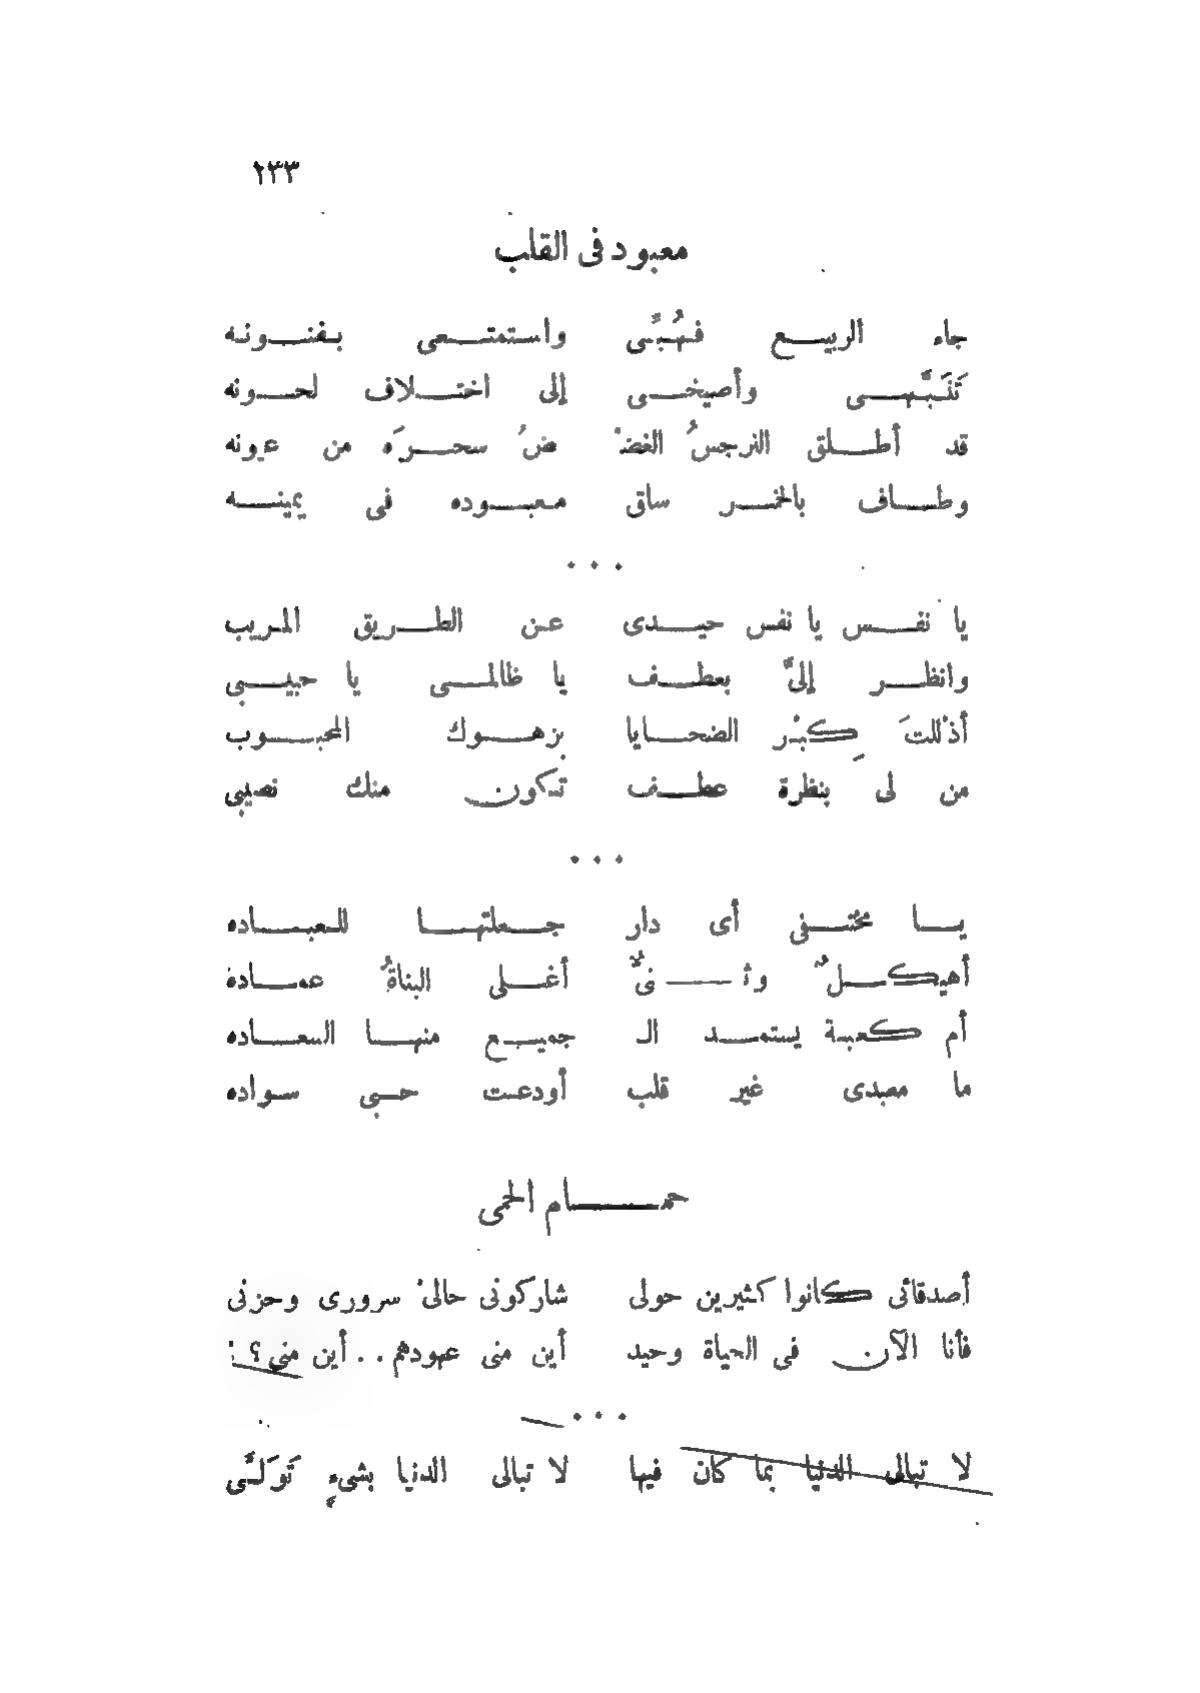 ١٣٣
معبود فى القلب
جاء الربيع فهُبِّى واستمتعى بفنونه
تَنَبَّهى وأصيخى إلى اختلاف لحونه
قد أطلق النرجسُ الغضْ ضُ سحرَه من عيونه
وطاف بالخمر ساق معبوده فى يمينه
• • •
يا نفس يا نفس حيدى عن الطريق المريب
وانظر إلىَّ بعطف يا ظالمى يا حبيبى
أذْللتَ كِبْر الضحايا بزهوك المحبوب
من لى بنظرة عطف تكون منك نصيبى
• • •
يا محنتى أى دار جعلتها للعباده
أهيكلٌ وثنىٌّ أغلى البناةُ عماده
أم كعبة يستمد الـ جميع منها السعاده
ما معبدى غير قلب أودعت حبى سواده
حمام الحمى
أصدقائى كانوا كثيرين حولى شاركونى حالىْ سرورى وحزنى
فأنا الآن فى الحياة وحيد أين منى عهودهم . . أين منى ؟ !
• • •
لا تبالى الدنيا بما كان فيها لا تبالى الدنيا بشىءٍ تَوَلَّى